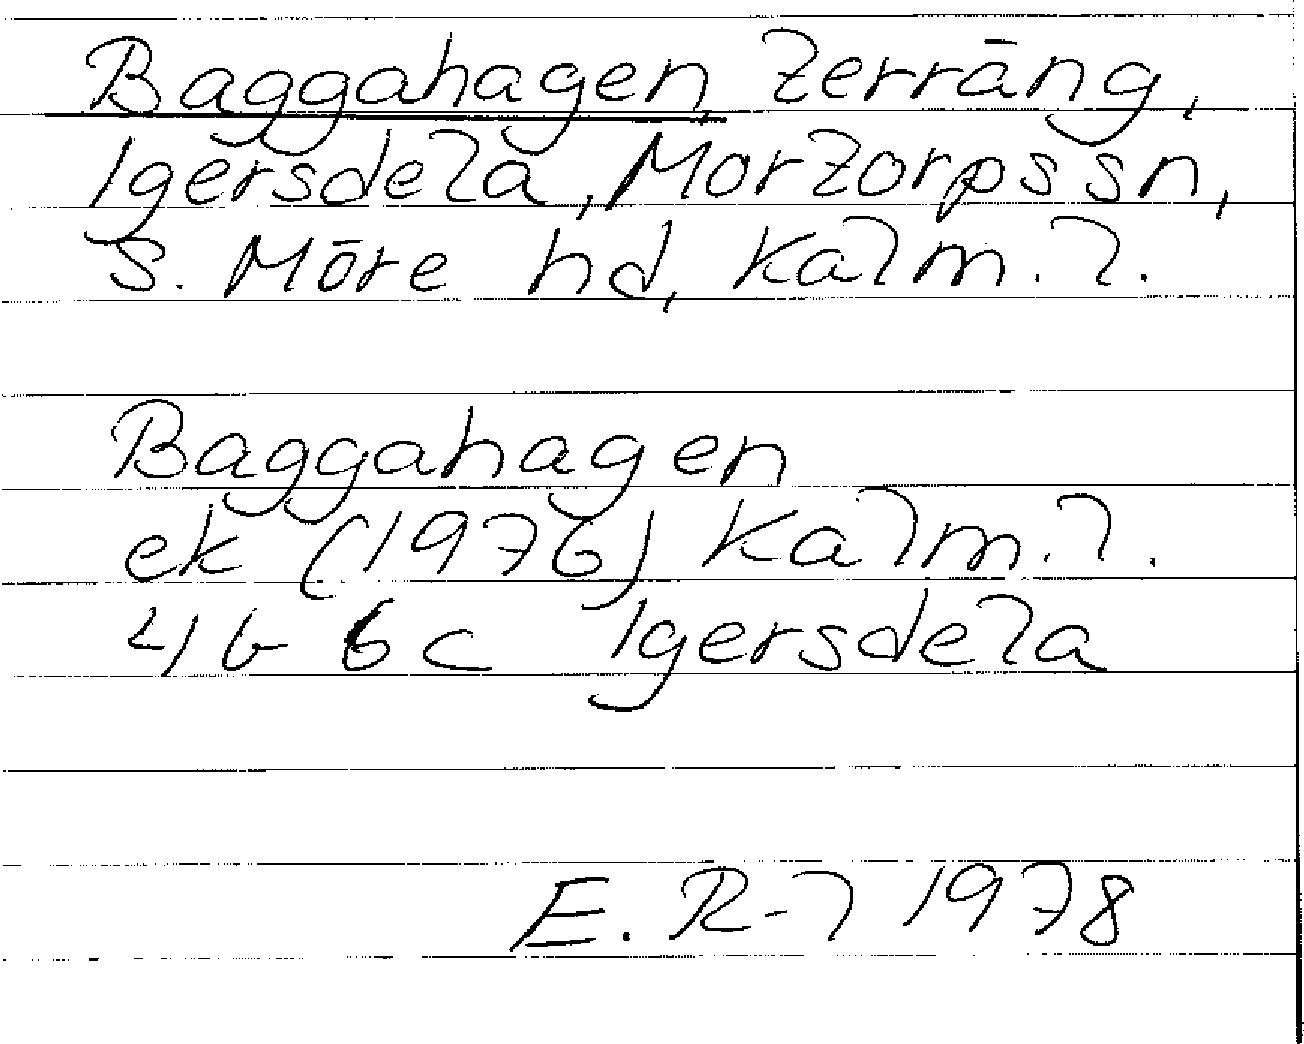 Baggahagen, terräng,
Igersdela, Mortorps sn,
S. Möre hd, Kalm. l.
Baggahagen
ek (1976) Kalm. l.
4G 6c Igersdela
E. R-l 1978